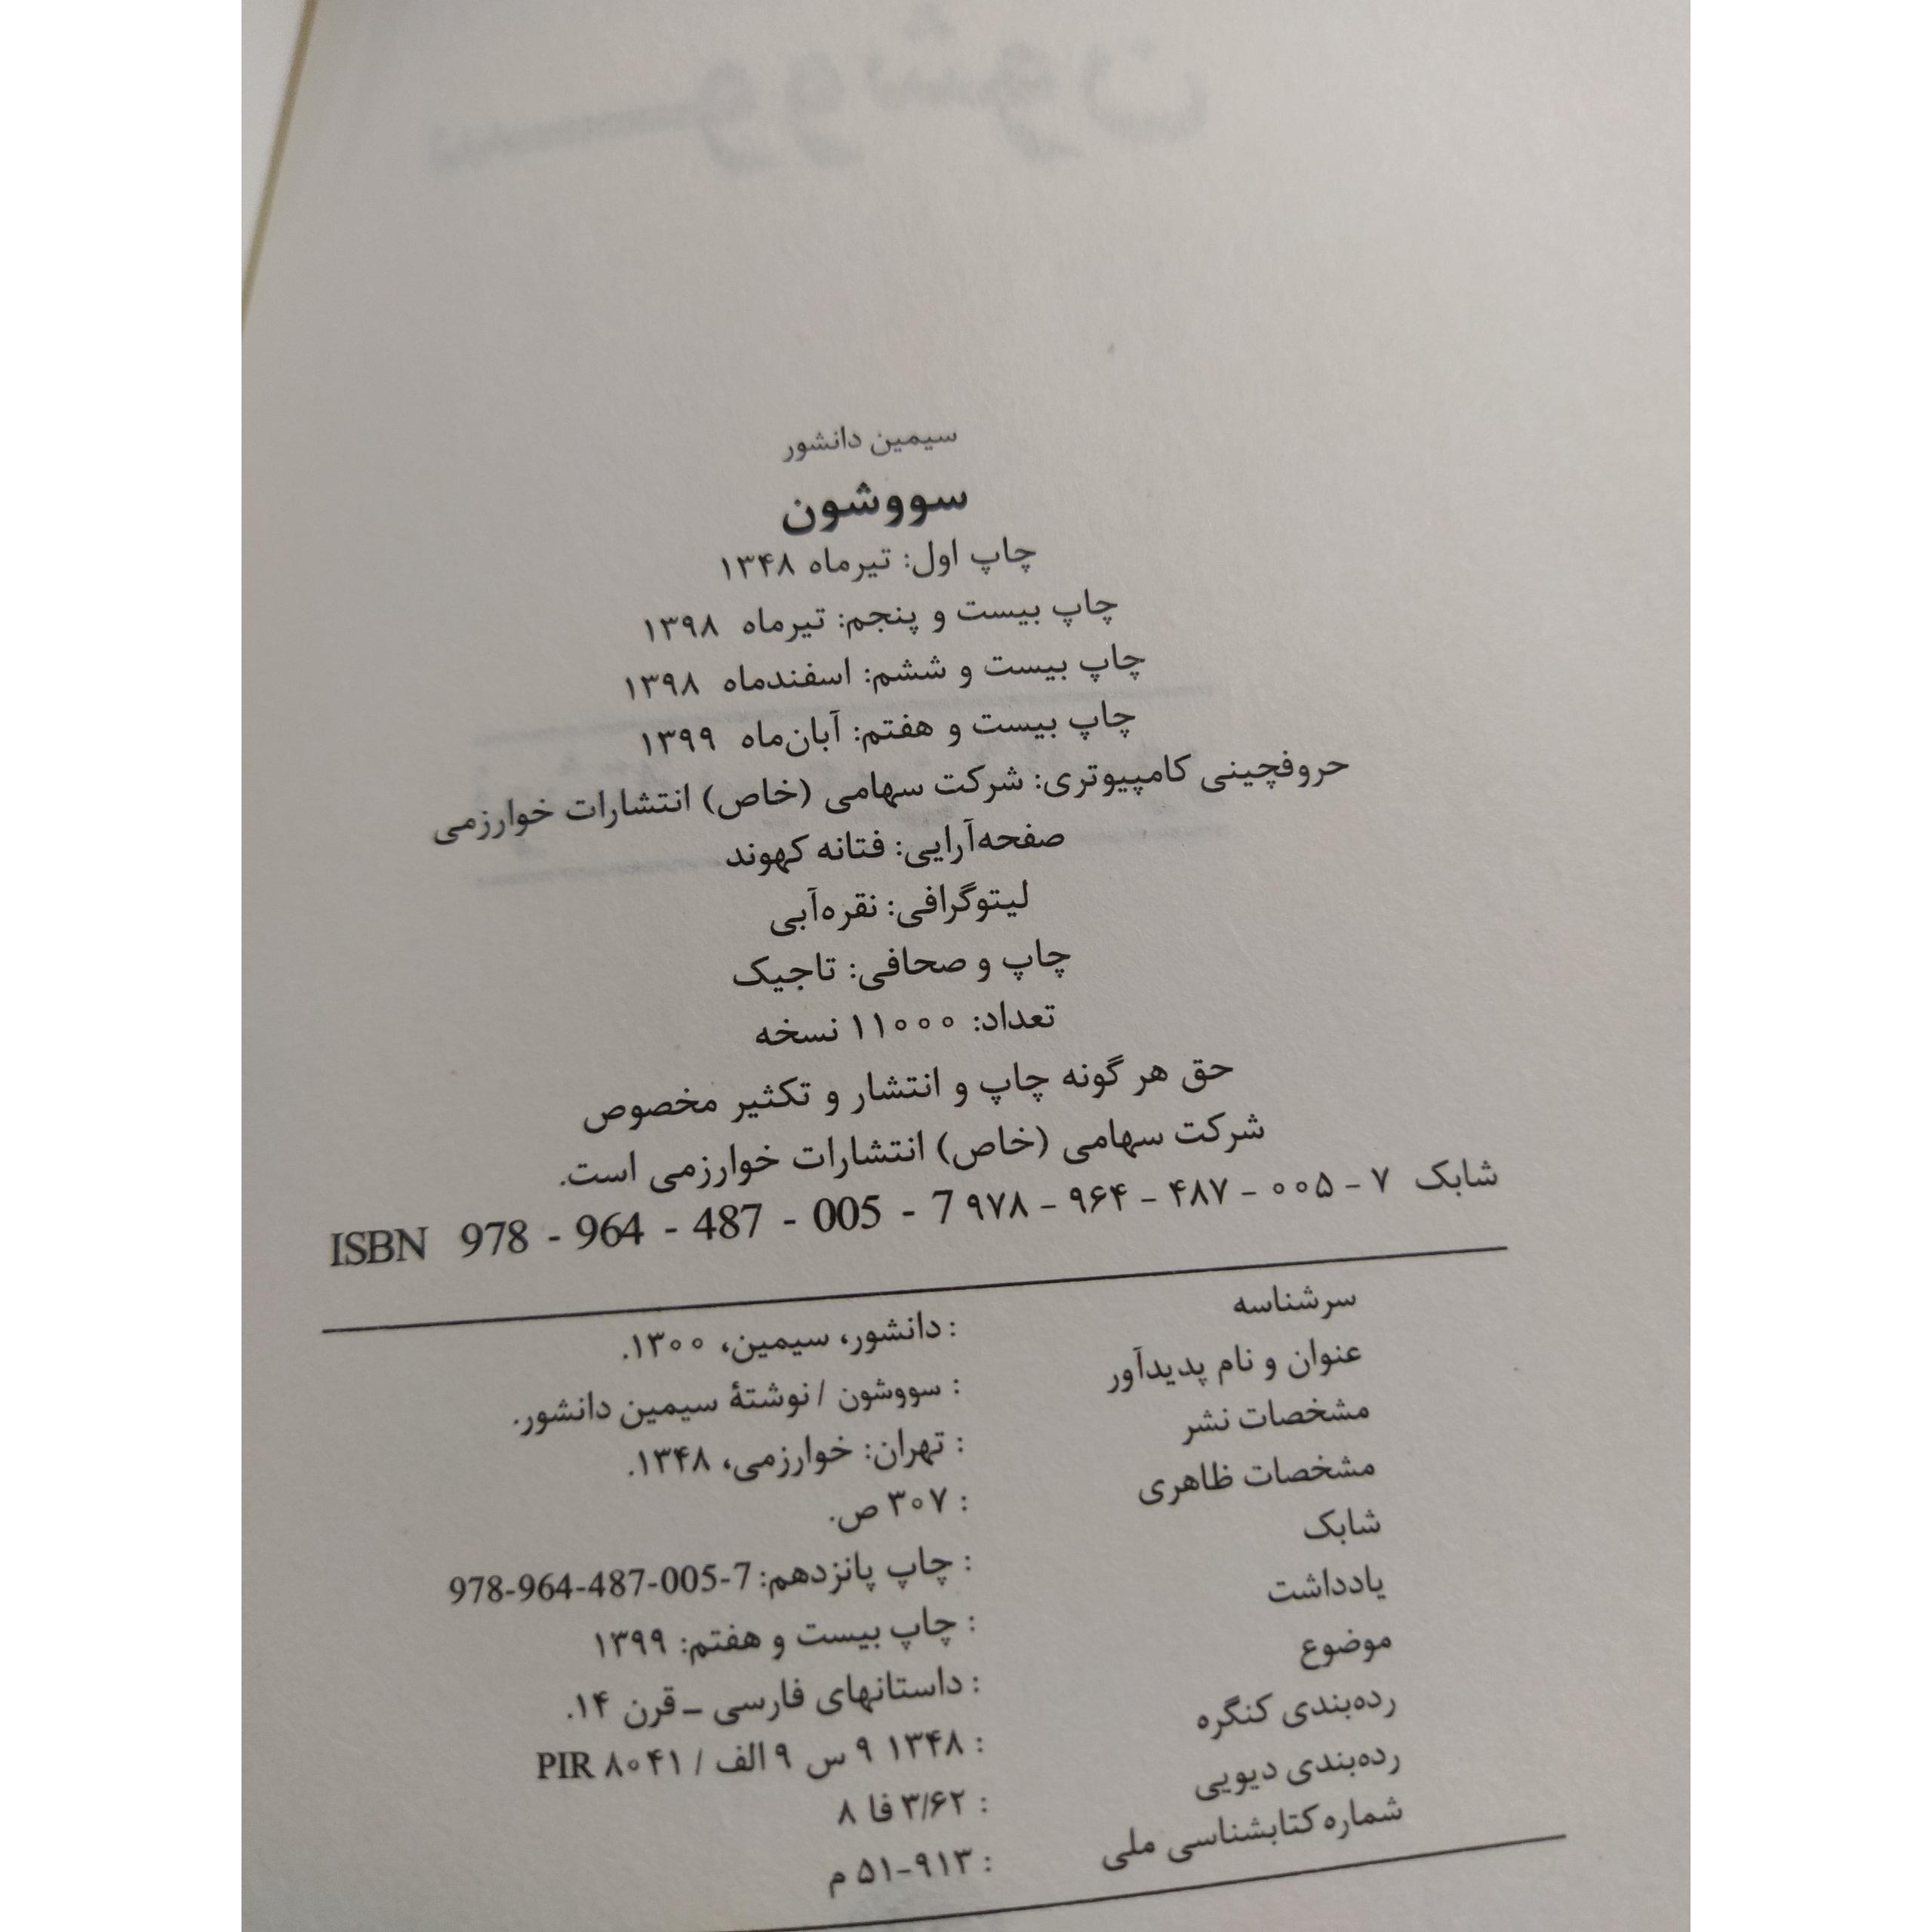 سووشون
سیمین دانشور
سووشون
چاپ اول: تیرماه ۱۳۴۸
چاپ بیست و پنجم: تیرماه ۱۳۹۸
چاپ بیست و ششم: اسفندماه ۱۳۹۸
چاپ بیست و هفتم: آبان‌ماه ۱۳۹۹
حروفچینی کامپیوتری: شرکت سهامی (خاص) انتشارات خوارزمی
صفحه‌آرایی: فتانه کهوند
لیتوگرافی: نقره‌آبی
چاپ و صحافی: تاجیک
تعداد: ۱۱۰۰۰ نسخه
حق هر گونه چاپ و انتشار و تکثیر مخصوص
شرکت سهامی (خاص) انتشارات خوارزمی است.
شابک ۷ - ۰۰۵ - ۴۸۷ - ۹۶۴ - ۹۷۸ ISBN 978 - 964 - 487 - 005 - 7
سرشناسه : دانشور، سیمین، ۱۳۰۰.
عنوان و نام پدیدآور : سووشون / نوشتهٔ سیمین دانشور.
مشخصات نشر : تهران: خوارزمی، ۱۳۴۸.
مشخصات ظاهری : ۳۰۷ ص.
شابک : چاپ پانزدهم: 978-964-487-005-7
یادداشت : چاپ بیست و هفتم: ۱۳۹۹
موضوع : داستانهای فارسی ـ قرن ۱۴.
رده‌بندی کنگره : ۱۳۴۸ ۹ س ۹ الف / PIR ۸۰۴۱
رده‌بندی دیویی : ۳/۶۲ فا ۸
شماره کتابشناسی ملی : ۹۱۳-۵۱ م